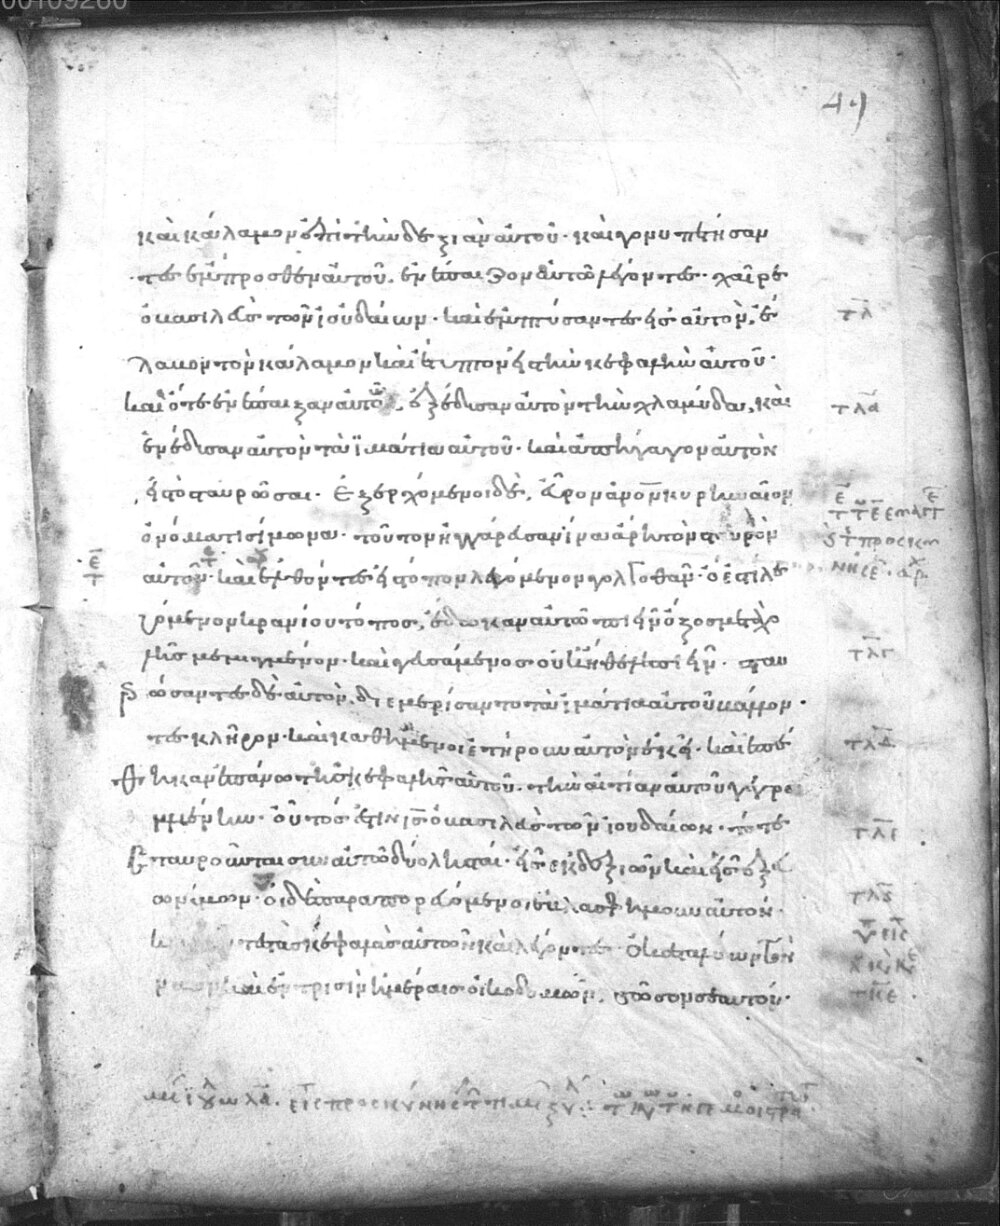 00109260
49
καὶ κάλαμον ἐπὶ τὴν δεξιὰν αὐτοῦ· καὶ γονυπετήσαν
τες ἔμπροσθεν αὐτοῦ, ἐνέπαιζον αὐτῶ λέγοντες· χαῖρε
ὁ βασιλεὺς τῶν ἰουδαίων· καὶ ἐμπτύσαντες εἰς αὐτὸν, ἔ
λαβον τὸν κάλαμον καὶ ἔτυπτον εἰς τὴν κεφαλὴν αὐτοῦ·
καὶ ὅτε ἐνέπαιξαν αὐτῶ, ἐξέδυσαν αὐτὸν τὴν χλαμύδα, καὶ
ἐνέδυσαν αὐτὸν τὰ ἱμάτια αὐτοῦ· καὶ ἀπήγαγον αὐτὸν
εἰς τὸ σταυρῶσαι· Ἐξερχόμενοι δὲ, εὗρον ἄνον κυρηναῖον
ὀνόματι σίμωνα· τοῦτον ἠγγάρευσαν ἵνα ἄρη τὸν σταυρὸν
αὐτοῦ· καὶ ἐλθόντες εἰς τόπον λεγόμενον γολγοθᾶν· ὅ ἐστι λε
γόμενον κρανίου τόπος, ἔδωκαν αὐτῶ πιεῖν ὄξος μετὰ χο
λῆς μεμιγμένον· καὶ γευσάμενος οὐκ ἤθελε πιεῖν· σταυ
ρώσαντες δὲ αὐτὸν, διεμερίσαντο τὰ ἱμάτια αὐτοῦ βάλλον
τες κλῆρον· καὶ καθήμενοι ἐτήρουν αὐτὸν ἐκεῖ· καὶ ἐπέ
θηκαν ἐπάνω τῆς κεφαλῆς αὐτοῦ, τὴν αἰτίαν αὐτοῦ γεγρα
μμένην· οὗτός ἐστιν ις ὁ βασιλεὺς τῶν ἰουδαίων· τότε
σταυροῦνται σὺν αὐτῶ δύο λησταί· εἷς ἐκ δεξιῶν καὶ εἷς ἐξ εὐ
ωνύμων· οἱ δὲ παραπορευόμενοι ἐβλασφήμουν αὐτὸν·
τες τὰς κεφαλὰς αὐτῶν καὶ λέγοντες· ὁ καταλύων τὸν
ναὸν καὶ ἐν τρισὶν ἡμέραις οἰκοδομῶν, σῶσον σεαυτόν·
τλ
τλα
τλγ
τλδ
τλε
τλς